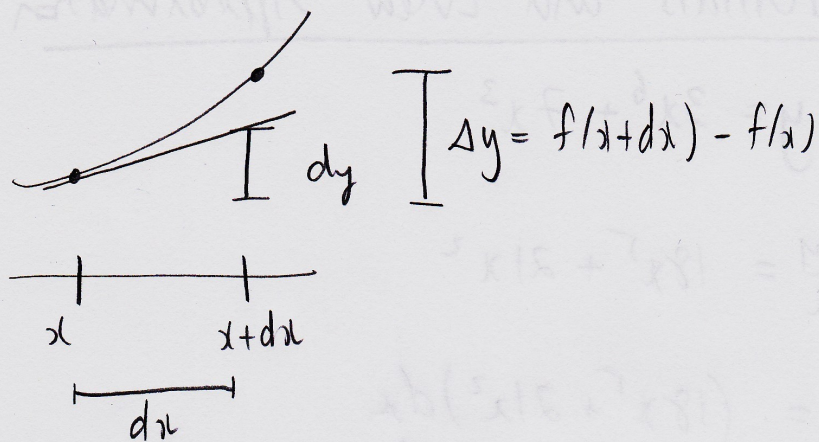 dy
Δy = f(x+dx) - f(x)
x
x+dx
dx